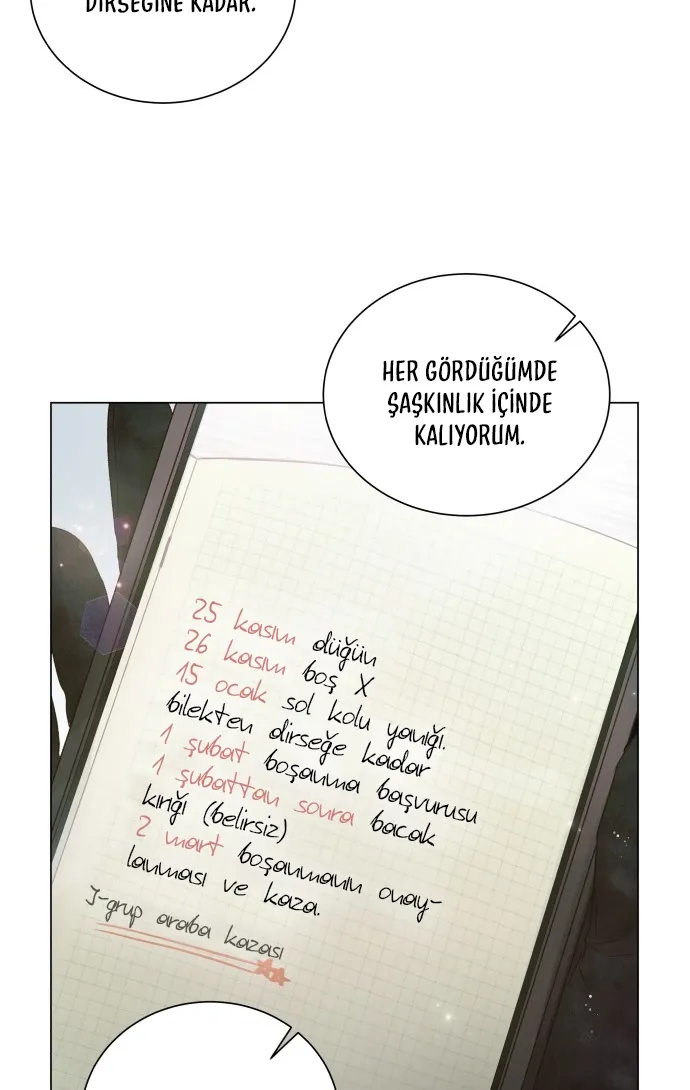 DİRSEĞİNE KADAR.
HER GÖRDÜĞÜMDE
ŞAŞKINLIK İÇİNDE
KALIYORUM.
25 kasım düğün
26 kasım boş X
15 ocak sol kolu yanığı.
bilekten dirseğe kadar
1 şubat boşanma başvurusu
1 şubattan sonra bacak
kırığı (belirsiz)
2 mart boşanmanın onay-
lanması ve kaza.
J-grup araba kazası